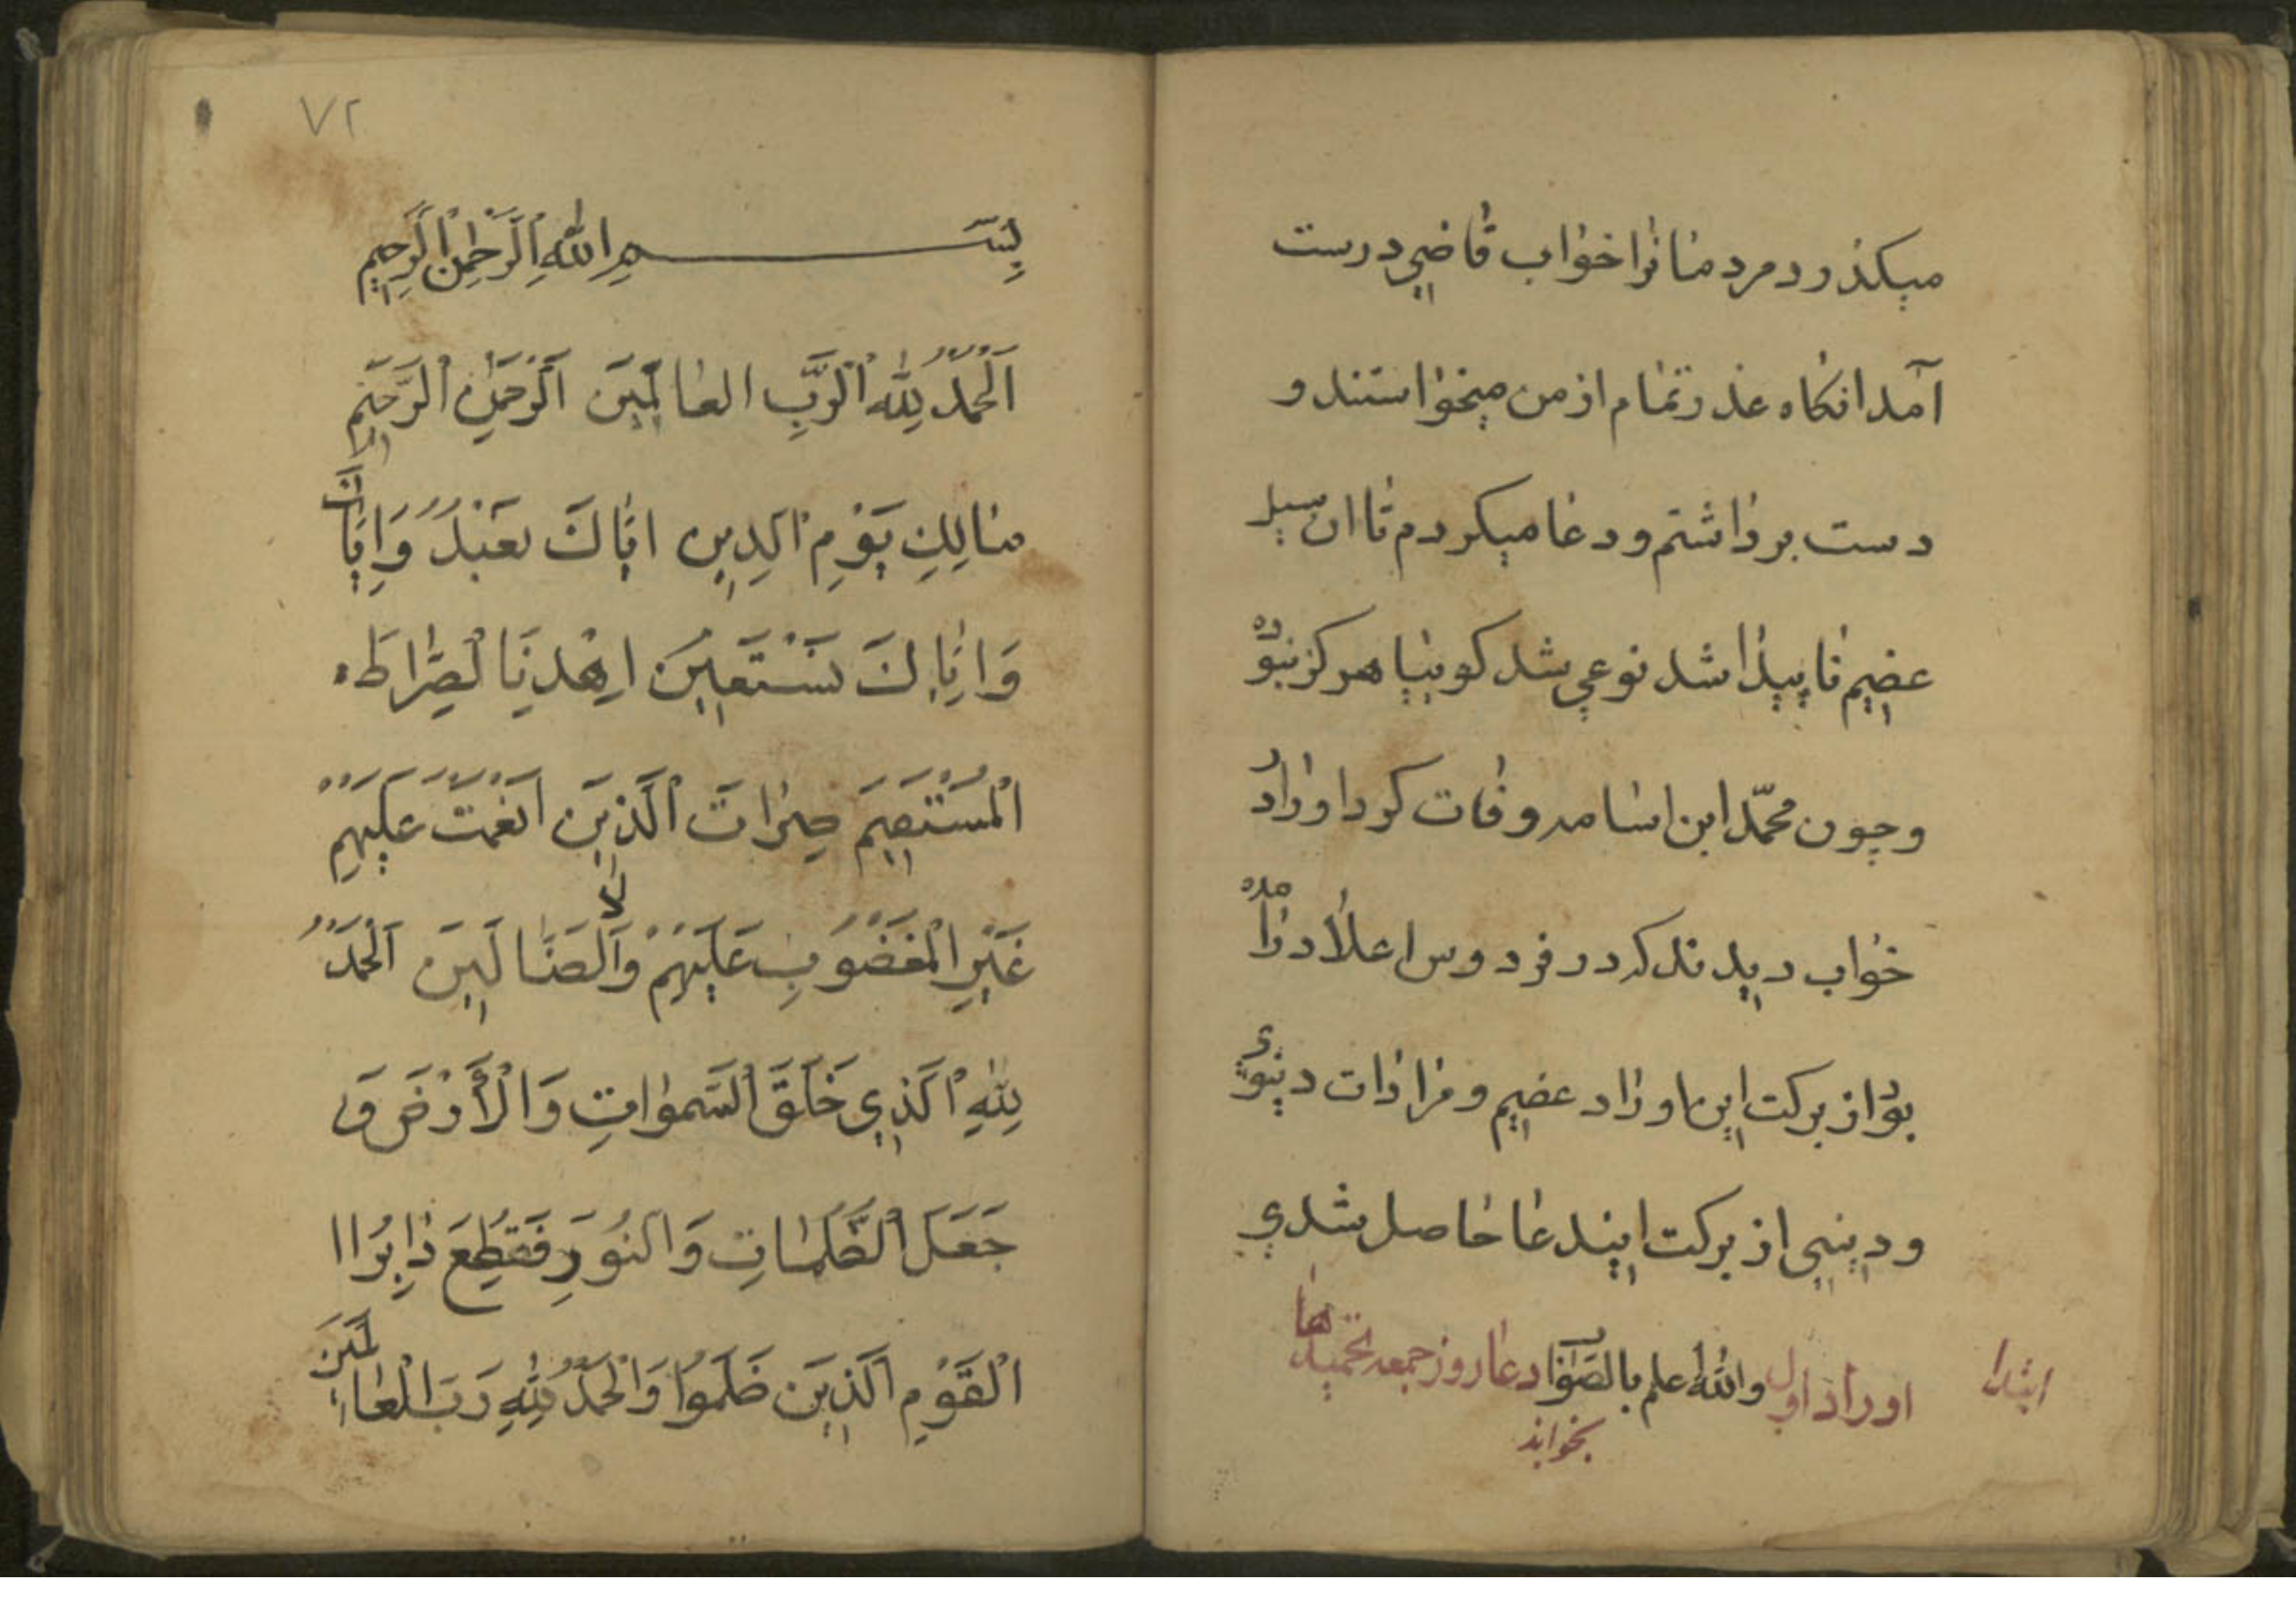 میکذرد مردمانرا خواب قاضی درست
آمد انکاه عذر تمام از من میخواستند و
دست برداشتم و دعا میکردم تا ان سیل
عضیم ناپیدا شد نوعی شد کوییا هرکز نبوده
وچون محمّد ابن اسامه وفات کرد اورا در
خواب دیدند که در فردوس اعلا درآمده
بود از برکت این اوراد عضیم و مرادات دنیوی
و دینیی از برکت ایندعا حاصل شدی
ابتدا اوراد اول والله اعلم بالصوّاب دعاء روز جمعه تحمیدها
بخواند
٧٢
بِسْمِ اللهِ الرَّحْمٰنِ الرَّحِيمِ
اَلْحَمْدُ لِلّٰهِ الْرَّبِّ العٰالَمِينَ الرَّحْمٰنِ الرَّحِيمِ
مٰالِكِ يَوْمِ الدِينِ ايّٰاكَ نَعْبُدُ وَاِيّٰاكَ
وَايّٰاكَ نَسْتَعِينَ اِهْدِنَا الْصِّرٰاطَ
الْمُسْتَقِيمَ صِرٰاتَ الَّذِينَ اَنْعَمْتَ عَلَيْهِمْ
غَيْرِ الْمَغْضُوبِ عَلَيْهِمْ وَلَا الضّٰالِينَ اَلْحَمْدُ
لِلّٰهِ الَّذِي خَلَقَ السَّمٰوٰاتِ وَالْأَرْضَ وَ
جَعَلَ الظُّلُمٰاتِ وَالنُورَ فَقُطِعَ دٰابِرُ اا
الْقَوْمِ الَّذِينَ ظَلَمُوا وَالْحَمْدُ لِلّٰهِ رَبِّ الْعٰالَمِينَ